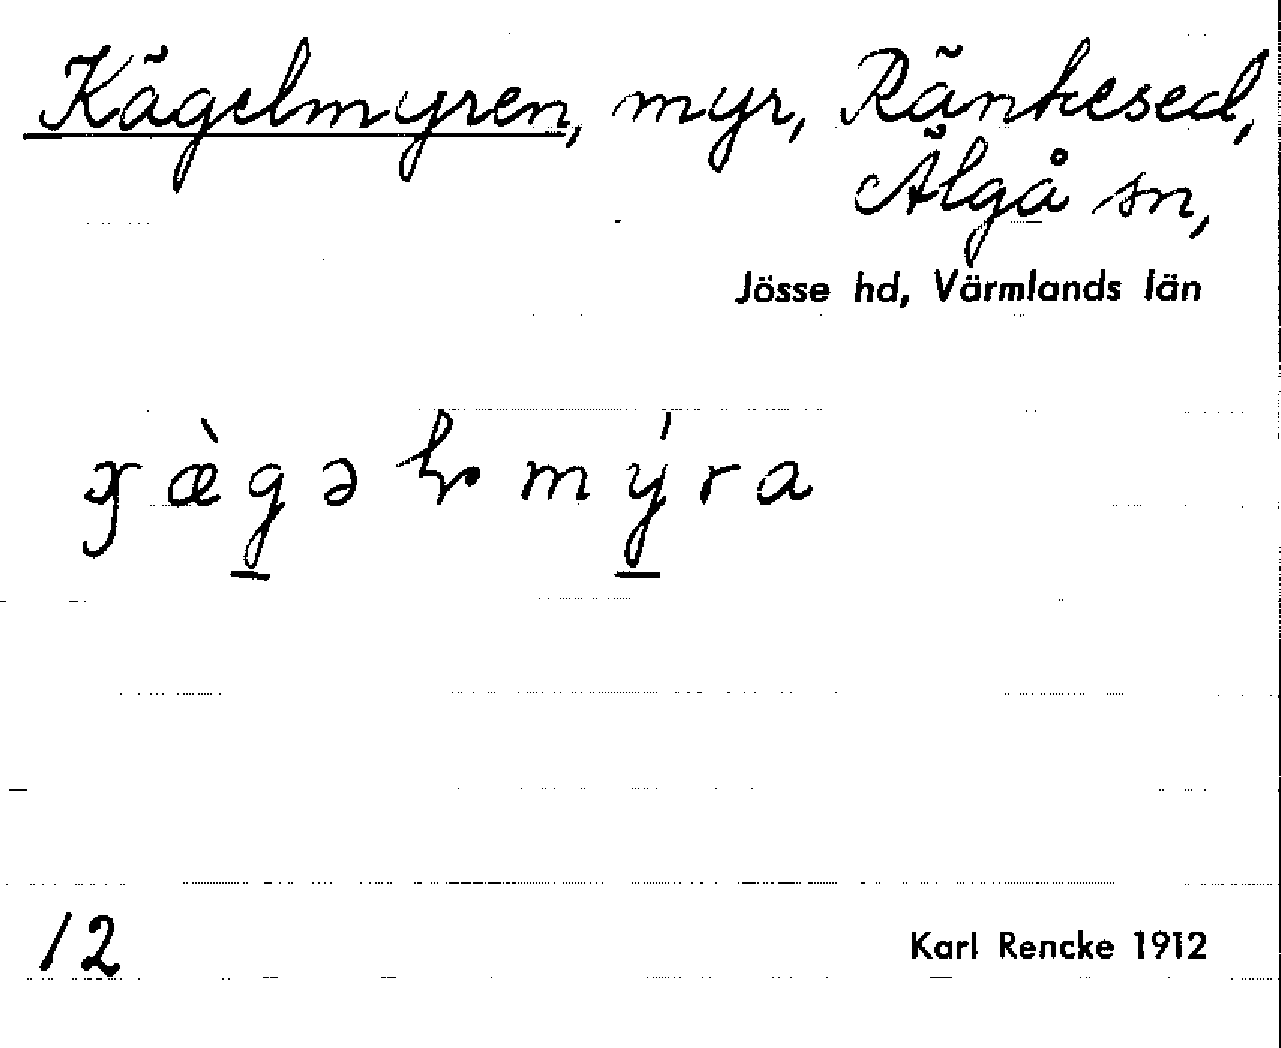 Kägelmyren, myr, Ränkesed,
Älgå sn,
Jösse hd, Värmlands län
mýra
12
Karl Rencke 1912